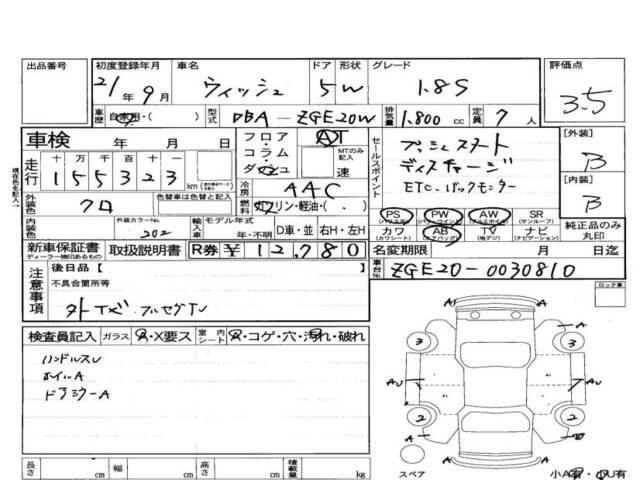 出品番号 初度登録年月 車名 ドア 形状 グレード 評価点
21年 9月 ウィッシュ 5 W 1.8S 3.5
車歴 自家用・( ) 型式 DBA-ZGE20W 排気量 1,800 cc 定員 7 人
車検 年 月 日 フロア・コラム・ダッシュ AT MTのみ記入 速
走行 十万 万 千 百 十 一
155323 km
冷房 AAC
燃料 ガソリン・軽油・( )
外装色 クロ 色替車は色替と記入
内装色 外装カラーNo. 202 輸入車 モデル年式 年・不明 D車・並 右H・左H
セールスポイント
プッシュスタート
ディスチャージ
ETC.バックモニター
PS (パワステ) PW (パワーウインド) AW (アルミホイル) SR (サンルーフ)
カワ (カワシート) AB (エアバッグ) TV (地デジ) ナビ (ナビゲーション)
[外装] B
[内装] B
純正品のみ丸印
現在色を記入→
新車保証書 ディーラー検印あるもの 取扱説明書 R券 ¥12,780 名変期限 月 日迄
車台No. ZGE20-0030810
注意事項 後日品【 】
不具合箇所等
外ナビ.フルセグTV
ロック車
検査員記入 ガラス A・X要ス 室内シート A・コゲ・穴・汚れ・破れ
ハンドルスレ
ホイルA
ドアミラーA
A A 3 3 AU AU 2 2 A
長さ cm 幅 cm 高さ cm 積載量 kg
スペア 小A有・小U有